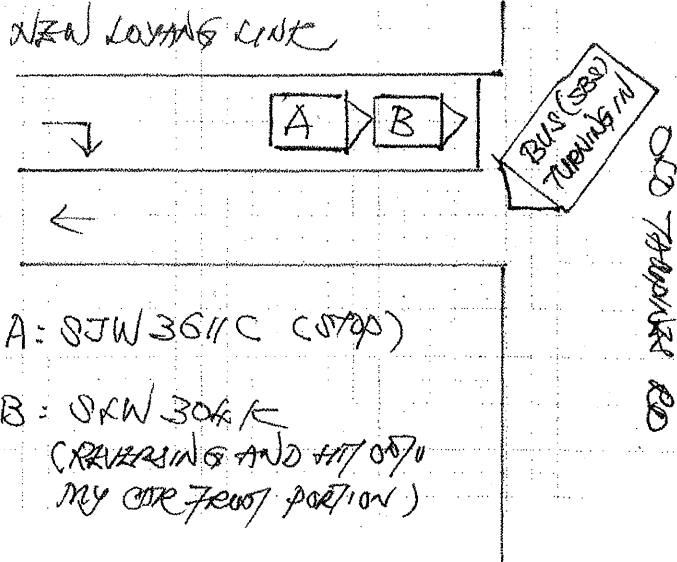 NEW LOYANG LINK
A
B
BUS (SBS)
TURNING IN
OLD TAMPINES RD
A: SJW3611C (STOP)
B: SKW304K
(REVERSING AND HIT ONTO
MY CAR FRONT PORTION)